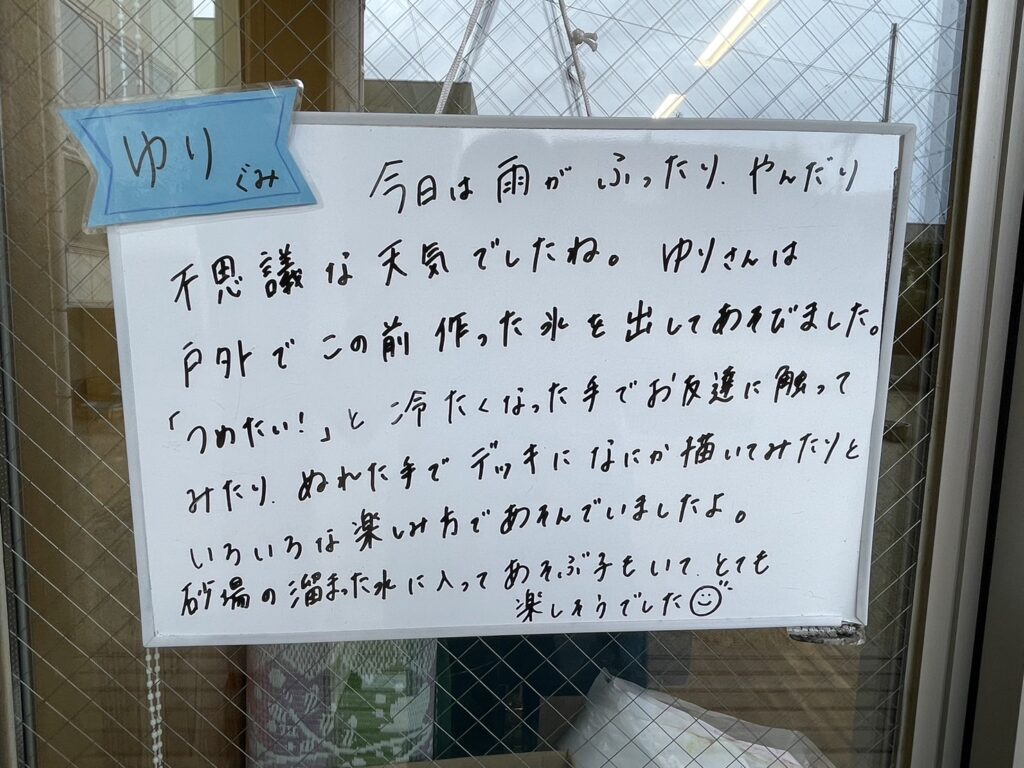 ゆり
ぐみ
今日は雨がふったり、やんだり
不思議な天気でしたね。ゆりさんは
戸外でこの前作った氷を出してあそびました。
「つめたい!」と冷たくなった手でお友達に触って
みたり、ぬれた手でデッキになにか描いてみたりと
いろいろな楽しみ方であそんでいましたよ。
砂場の溜まった水に入ってあそぶ子もいて、とても
楽しそうでした